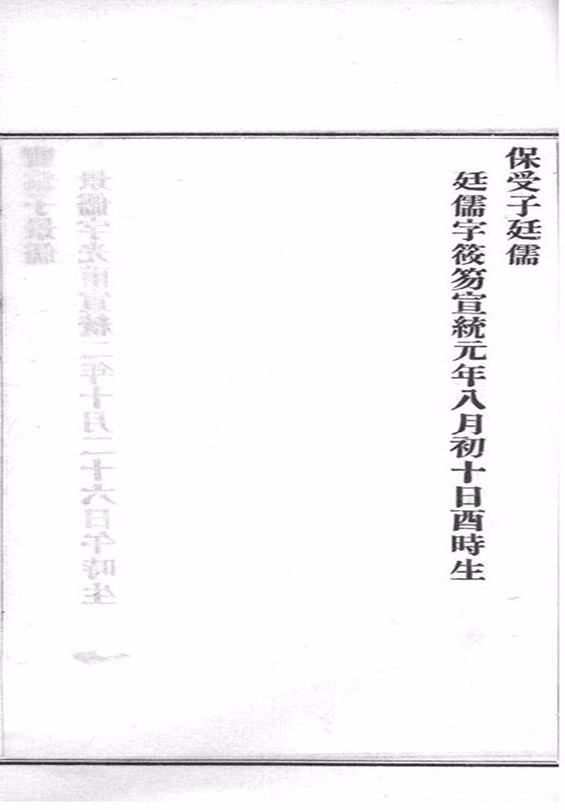 保受子廷儒
廷儒字筱笏宣統元年八月初十日酉時生